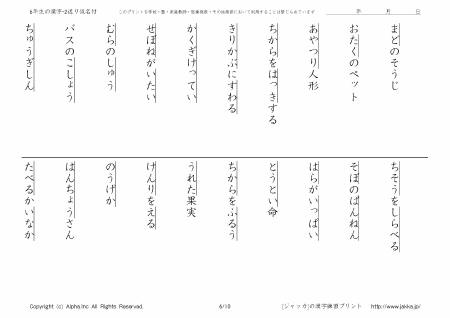 6年生の漢字-2送り仮名付
このプリントは学校・塾・家庭教師・医療施設・その他施設において利用することは禁じられています
年　月　日
まどのそうじ
おたくのペット
あやつり人形
ちからをはっきする
きりかぶにすわる
かくぎけってい
せぼねがいたい
むらのしゅう
バスのこしょう
ちゅうぎしん
ちそうをしらべる
そぼのばんねん
はらがいっぱい
とうとい命
ちからをふるう
うれた果実
けんりをえる
のうげか
はんちょうさん
たべるかいなか
Copyright (c) Alpha.Inc All Rights Reserved.
6/10
[ジャッカ]の漢字練習プリント　http://www.jakka.jp/